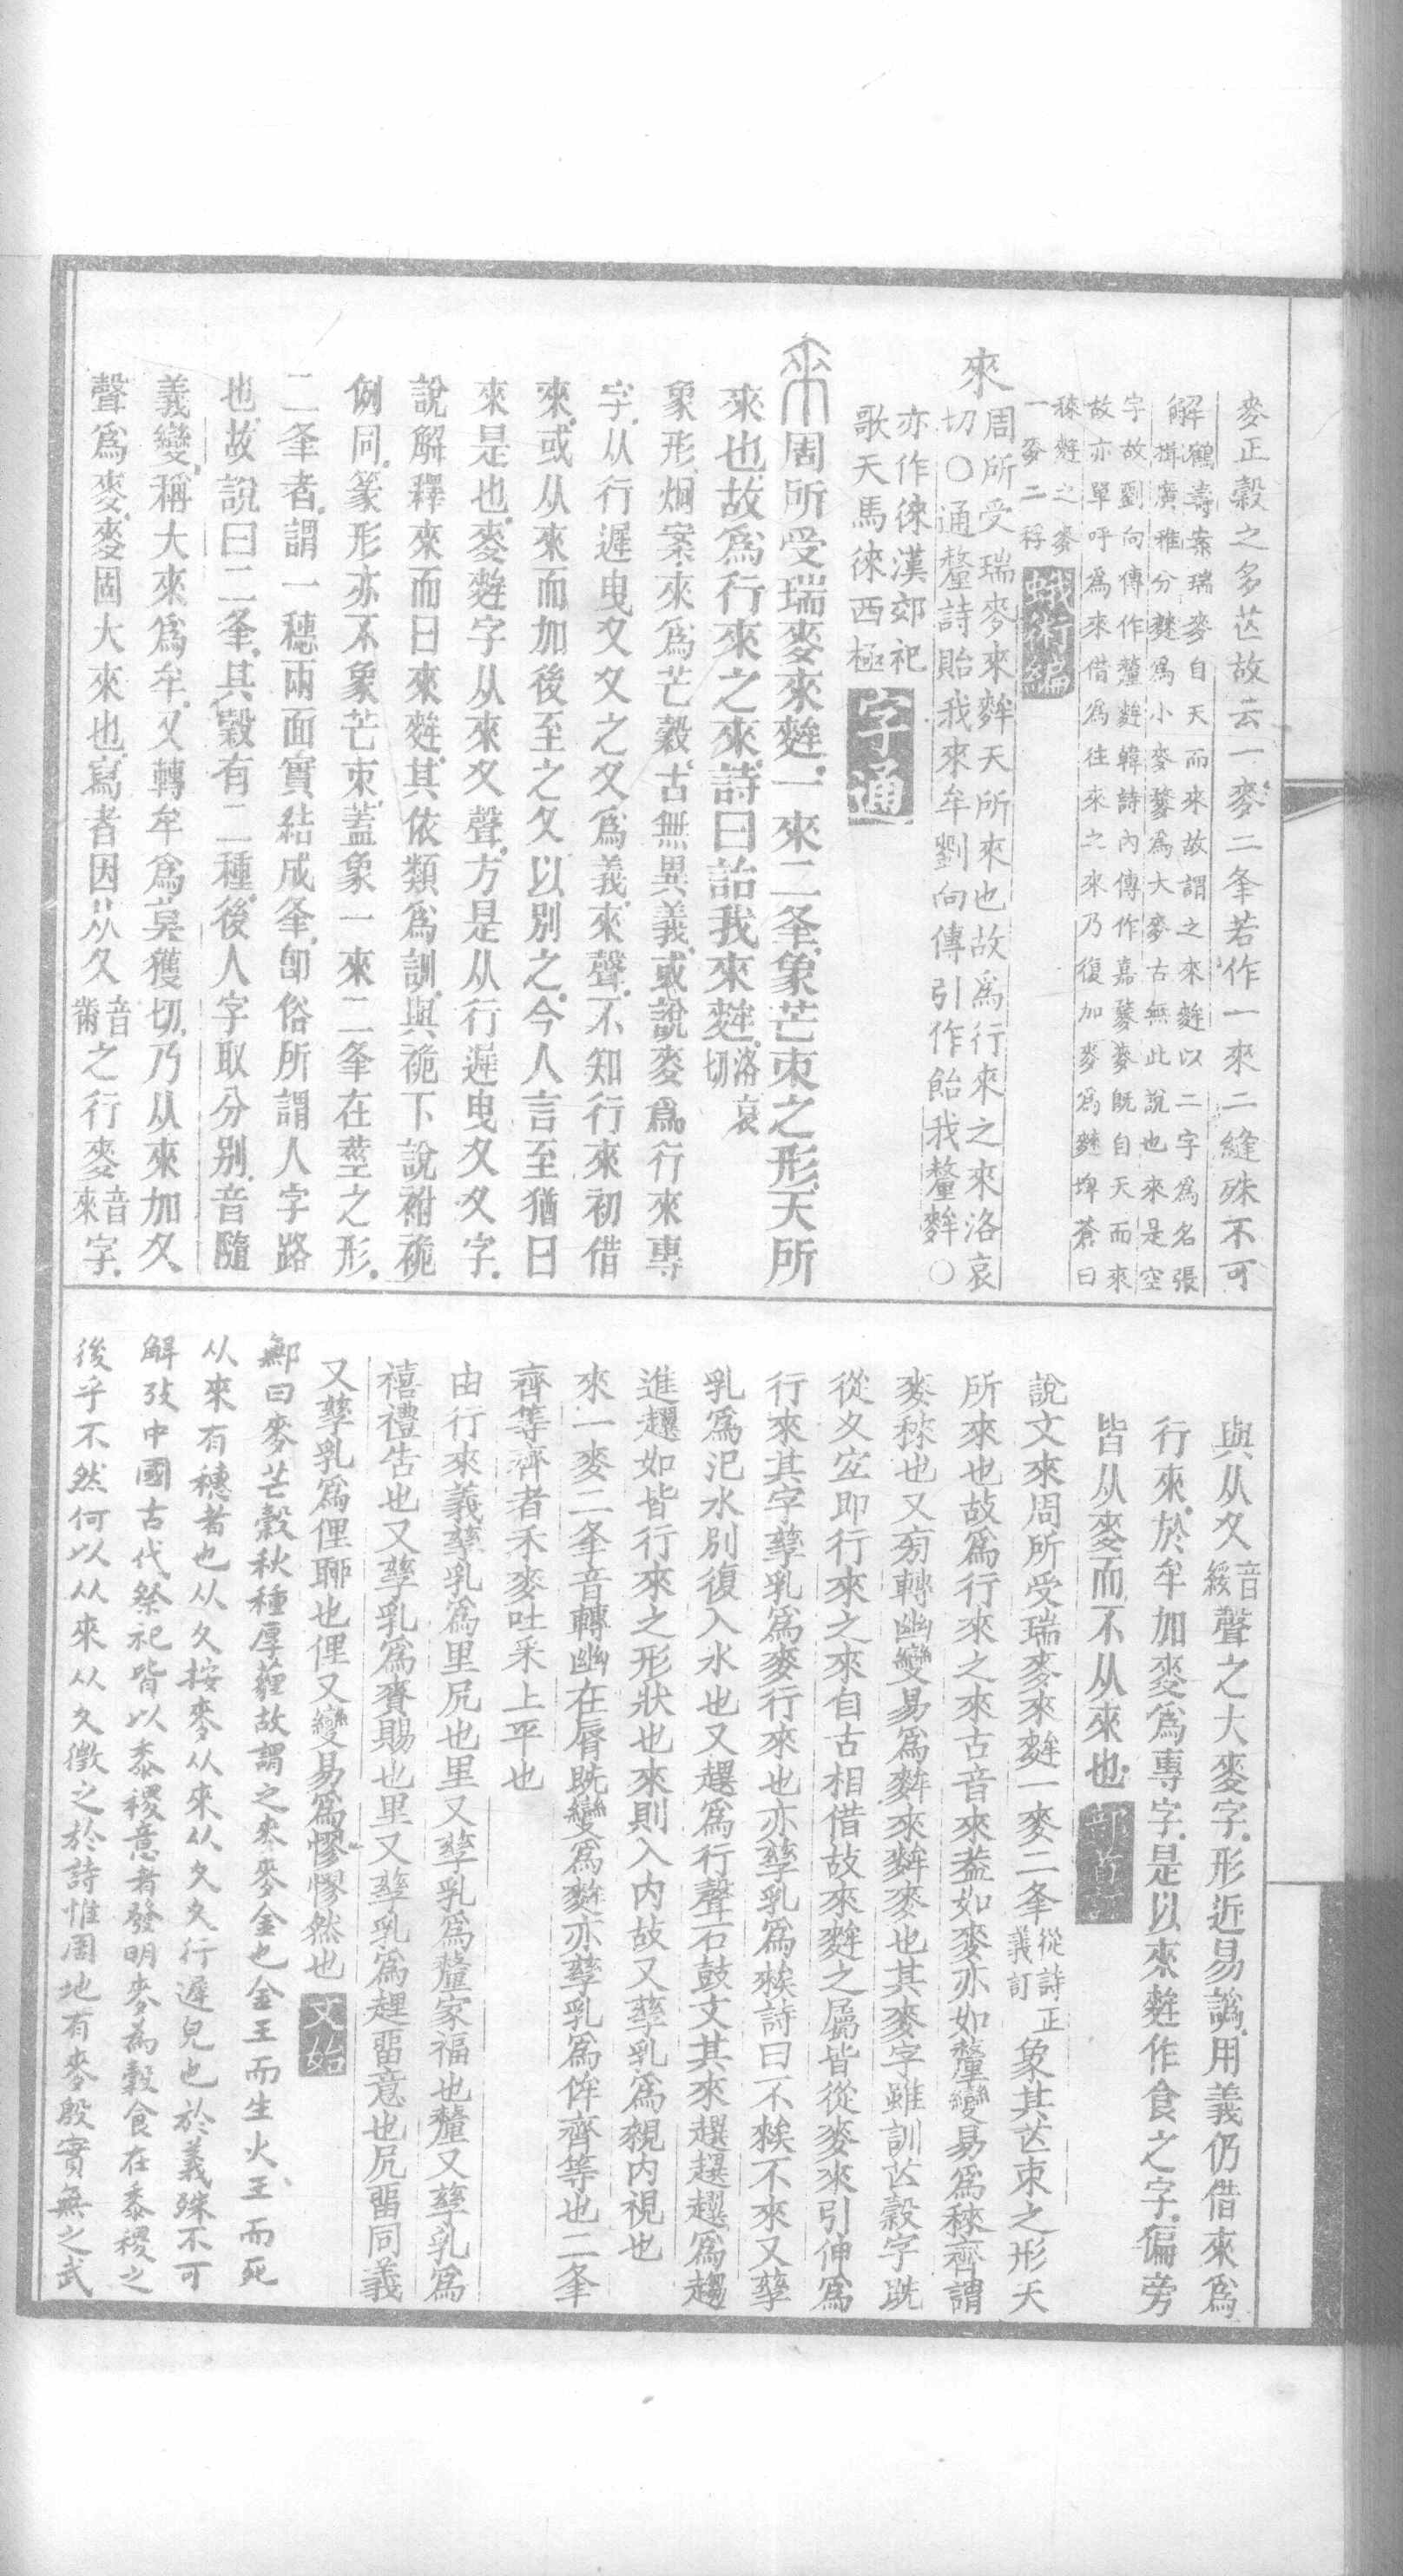 麥正穀之多芒故云一麥二夆若作一來二縫殊不可
解鶴壽案瑞麥自天而來故謂之來麰以二字為名張
揖廣雅分䅘為小麥麰為大麥古無此說也來是空
字故劉向傳作釐麰韓詩內傳作嘉麰麥既自天而來
故亦單呼為來借為往來之來乃復加麥為䅘埤蒼曰
䅘麰之麥
一麥二稃
蛾術編
來
周所受瑞麥來麰天所來也故為行來之來洛哀
切○通釐詩貽我來牟劉向傳引作飴我釐麰○
亦作徠漢郊祀
歌天馬徠西極
字通
周所受瑞麥來麰一來二夆象芒朿之形天所
來也故為行來之來詩曰詒我來麰洛哀切
象形烱案來為芒穀古無異義或說麥為行來專
字从行遲曳夊夊之夊為義來聲不知行來初借
來或从來而加後至之夂以別之今人言至猶曰
來是也麥麰字从來夊聲方是从行遲曳夊夊字
說解釋來而曰來麰其依類為訓與祪下說祔祪
例同篆形亦不象芒朿蓋象一來二夆在莖之形
二夆者謂一穗兩面實結成夆卽俗所謂人字路
也故說曰二夆其穀有二種後人字取分別音隨
義變稱大來為牟又轉牟為莫獲切乃从來加夊
聲為麥麥固大來也寫者因从夂音黹之行麥音來字
與从夊音綏聲之大麥字形近易譌用義仍借來為
行來於牟加麥為專字是以來麰作食之字偏旁
皆从麥而不从來也
部首訂
說文來周所受瑞麥來麰一麥二夆從詩正義訂象其芒朿之形天
所來也故為行來之來古音來葢如麥亦如釐變易為䅘齊謂
麥䅘也又㫄轉幽變易為麰來麰麥也其麥字雖訓芒穀字旣
從夊宐即行來之來自古相借故來麰之屬皆從麥來引伸為
行來其字孳乳為麥行來也亦孳乳為䅩詩曰不䅩不來又孳
乳為汜水別復入水也又趩為行聲石鼓文其來趩趩趩為趨
進趩如皆行來之形狀也來則入內故又孳乳為覝內視也
來一麥二夆音轉幽在脣旣變為麰亦孳乳為侔齊等也二夆
齊等齊者禾麥吐采上平也
由行來義孳乳為里凥也里又孳乳為釐家福也釐又孳乳為
禧禮吿也又孳乳為賚賜也里又孳乳為趕畱意也凥畱同義
又孳乳為俚聊也俚又變易為憀憀然也
文始
鄦曰麥芒穀秋種厚薶故謂之麥麥金也金王而生火王而死
从來有穗者也从夊按麥从來从夊夊行遲皃也於義殊不可
解攷中國古代祭祀皆以黍稷意者發明麥為穀食在黍稷之
後乎不然何以从來从夊徵之於詩惟周地有麥殷實無之武